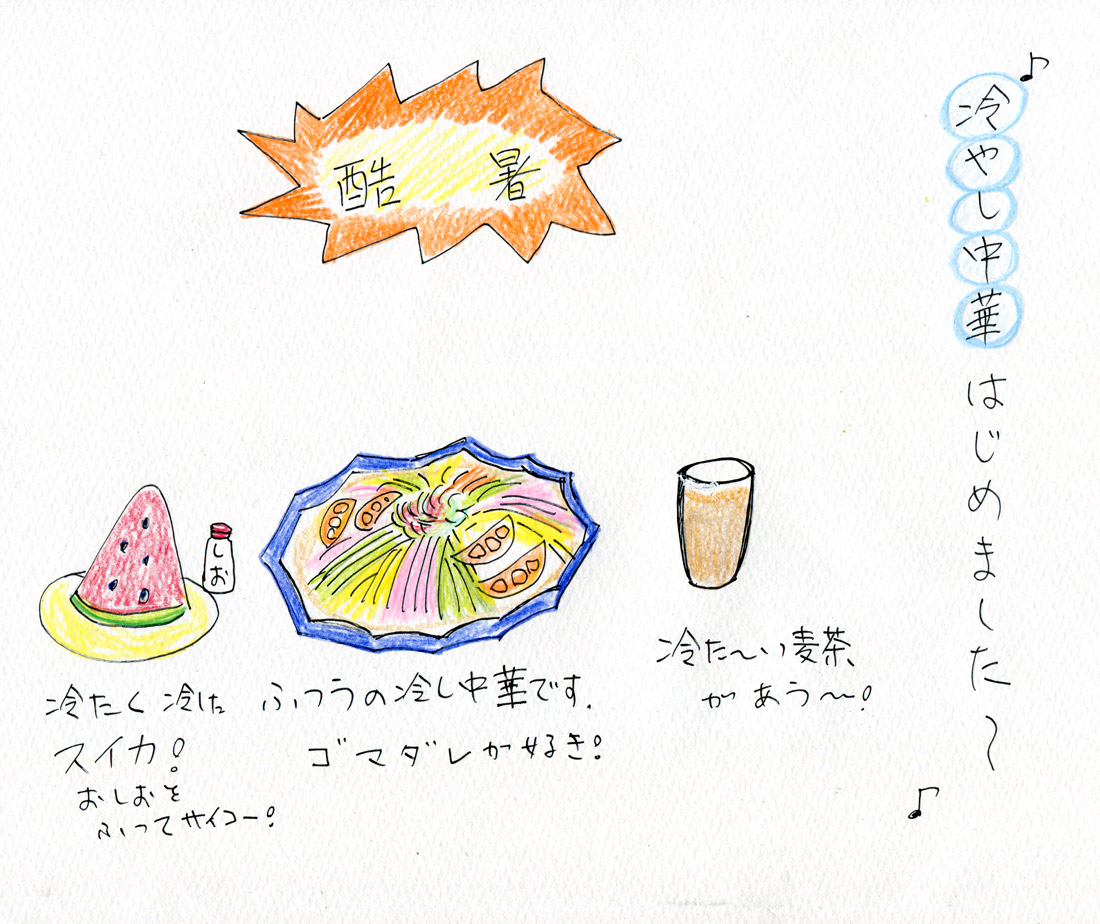 ♪冷やし中華はじめました〜♪
酷暑
しお
冷たく冷した
スイカ!
おしおを
ふってサイコー!
ふつうの冷し中華です.
ゴマダレが好き!
冷た〜い麦茶
があう〜!